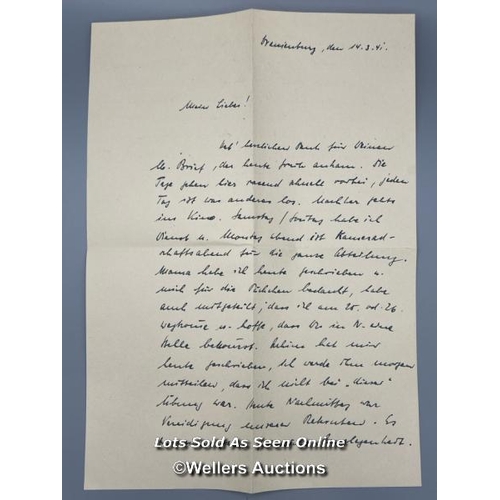 Oranienburg, den 14.3.41.
Mein Lieber!
Hab' herzlichen Dank für Deinen
lb. Brief, der heute früh ankam. Die
Tage gehen hier rasend schnell vorbei, jeden
Tag ist was anderes los. Nachher gehts
ins Kino. Samstag/Sonntag habe ich
Dienst u. Montag abend ist Kamerad-
schaftsabend für die ganze Abteilung.
Mama habe ich heute geschrieben u.
mich für die Päckchen bedankt, habe
auch mitgeteilt, dass ich am 25. od. 26.
wegkomme u. hoffe, dass Du in N. eine
Stelle bekommst. hat mir
heute geschrieben, ich werde ihm morgen
mitteilen, dass ich nicht bei "dieser"
Übung war. Heute Nachmittag war
Vereidigung unserer Rekruten. Es
Lots Sold As Seen Online
©Wellers Auctions